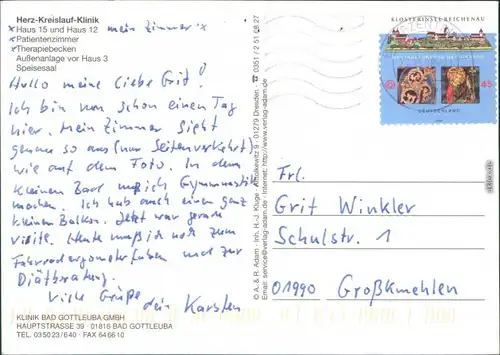 Herz-Kreislauf-Klinik
x Haus 15 und Haus 12 mein Zimmer x
x Patientenzimmer
x Therapiebecken
Außenanlage vor Haus 3
Speisesaal
Hallo meine Liebe Grit!
Ich bin nun schon einen Tag
hier. Mein Zimmer sieht
genau so aus (nur Seitenverkehrt)
wie auf dem Foto. In dem
kleinen Bad muß ich Gymnastik
machen. Ich hab auch einen ganz
kleinen Balkon. Jetzt war gerade
Visite. Heute muß ich noch zum
Fahrradergometerfahren und zur
Diätberatung.
Viele Grüße dein Karsten
KLINIK BAD GOTTLEUBA GMBH
HAUPTSTRASSE 39 · 01816 BAD GOTTLEUBA
TEL. 035023/640 · FAX 646610
A. & R. Adam - Inh. H.-J. Kluge 01279 Dresden · ☎ 0351 / 2 51 08 27
Email: service@verlag-adam.de · Internet: http://www.verlag-adam.de
KLOSTERINSEL REICHENAU
45
DEUTSCHLAND
Frl.
Grit Winkler
Schulstr. 1
01990 Großkmehlen